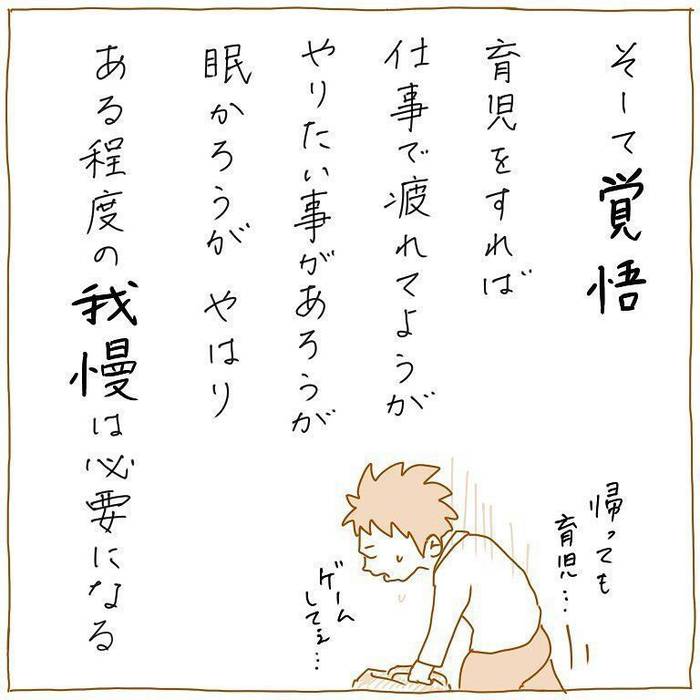 そして覚悟
育児をすれば
仕事で疲れてようが
やりたい事があろうが
眠かろうが やはり
ある程度の我慢は必要になる
帰っても
育児…
ゲーム
してぇ…